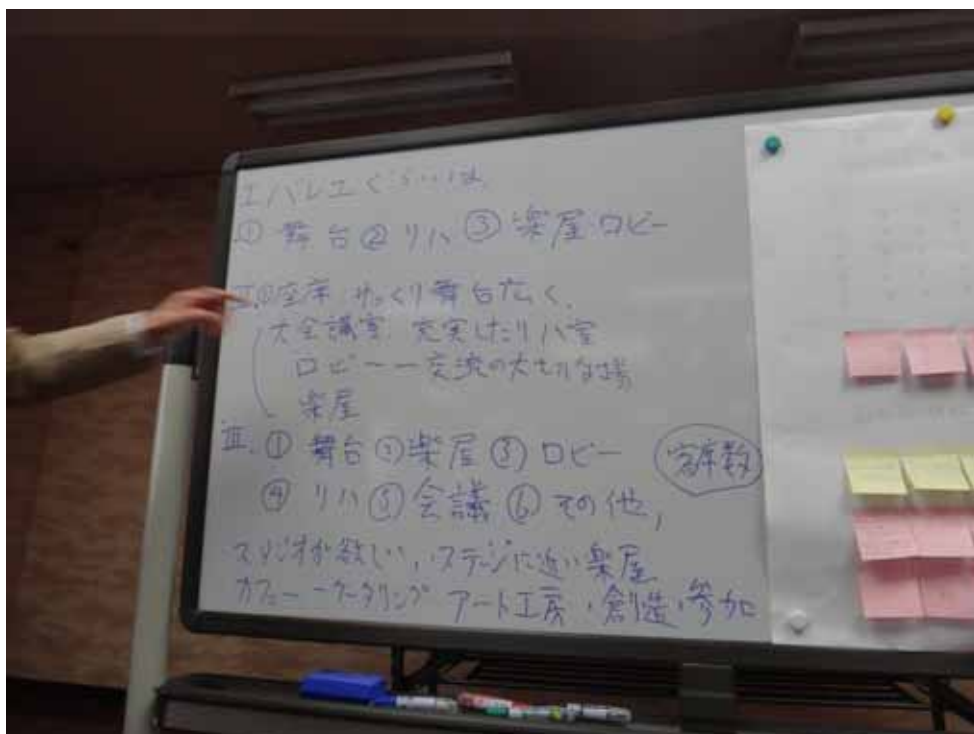 I バレエぐらいは
① 舞台 ② リハ ③ 楽屋・ロビー
II. ① 座席 ゆっくり 舞台広く.
大会議室 充実したリハ室
ロビー ― 交流の大切な場
楽屋
III. ① 舞台 ② 楽屋 ③ ロビー 客席数
④ リハ ⑤ 会議 ⑥ その他,
スタジオが欲しい, ステージに近い楽屋
カフェー ケータリング アート工房・創造・参加